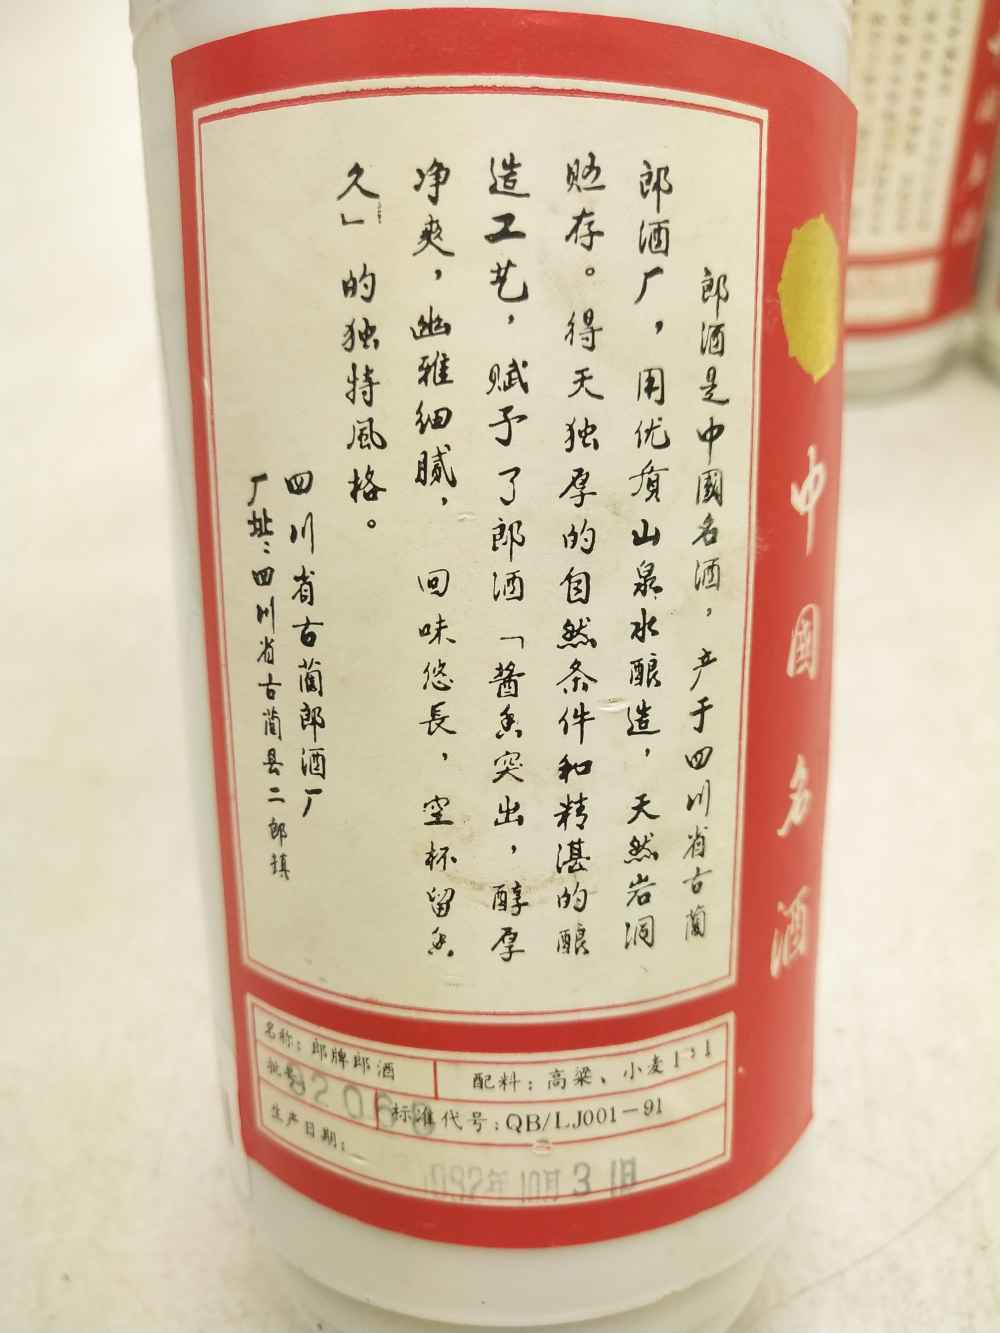 郎酒是中國名酒，产于四川省古蔺
郎酒厂，用优质山泉水酿造，天然岩洞
贮存。得天独厚的自然条件和精湛的酿
造工艺，赋予了郎酒「酱香突出，醇厚
净爽，幽雅细腻，回味悠長，空杯留香
久」的独特風格。
四川省古蔺郎酒厂
厂址：四川省古蔺县二郎镇
中國名酒
名称：郎牌郎酒
配料：高粱、小麦1:1
批号
标准代号：QB/LJ001-91
生产日期：
1992年10月31日